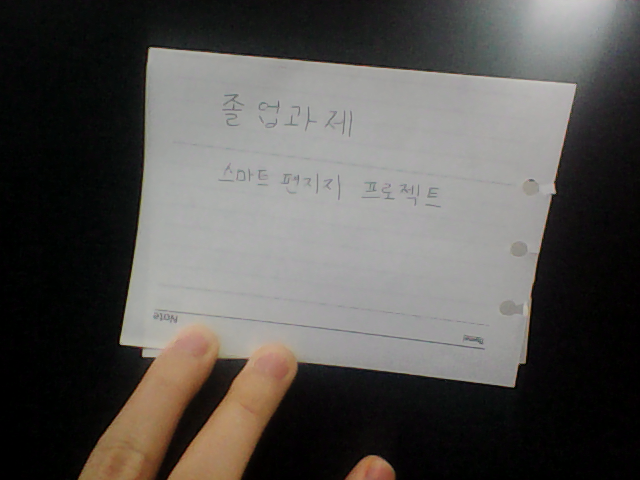 졸업과제
스마트 편지지 프로젝트
Note